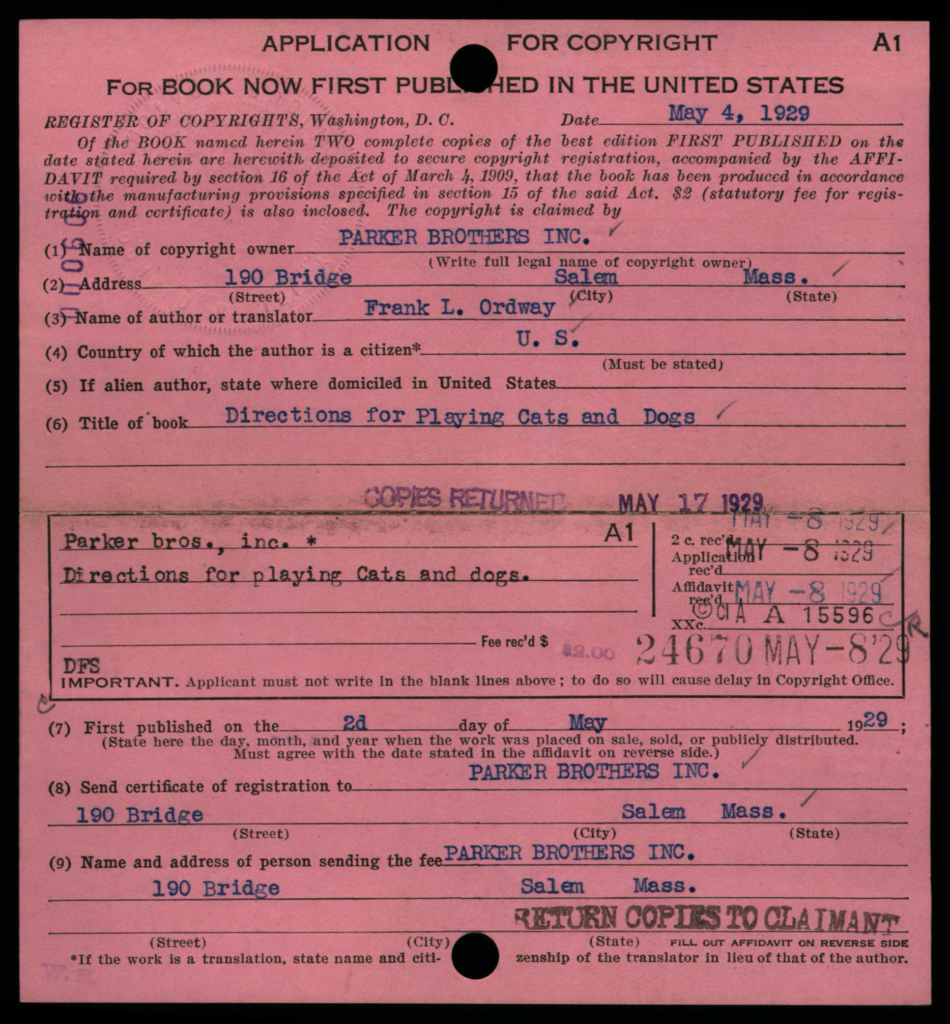 APPLICATION FOR COPYRIGHT A1
FOR BOOK NOW FIRST PUBL HED IN THE UNITED STATES
REGISTER OF COPYRIGHTS, Washington, D. C. Date May 4, 1929
Of the BOOK named herein TWO complete copies of the best edition FIRST PUBLISHED on the
date stated herein are herewith deposited to secure copyright registration, accompanied by the AFFI-
DAVIT required by section 16 of the Act of March 4, 1909, that the book has been produced in accordance
with the manufacturing provisions specified in section 15 of the said Act. $2 (statutory fee for regis-
tration and certificate) is also inclosed. The copyright is claimed by
(1) Name of copyright owner PARKER BROTHERS INC. ✓
(Write full legal name of copyright owner)
(2) Address 190 Bridge Salem Mass. ✓
(Street) (City) (State)
(3) Name of author or translator Frank L. Ordway ✓
(4) Country of which the author is a citizen* U. S. ✓
(Must be stated)
(5) If alien author, state where domiciled in United States
(6) Title of book Directions for Playing Cats and Dogs ✓
COPIES RETURNED MAY 17 1929
Parker bros., inc. * A1
2 c. rec'd MAY -8 1929
Directions for playing Cats and dogs.
Application rec'd MAY -8 1929
Affidavit rec'd MAY -8 1929
XXc. ©Cl A A 15596 CR
Fee rec'd $ $2.00 24670 MAY-8'29
DFS
IMPORTANT. Applicant must not write in the blank lines above; to do so will cause delay in Copyright Office.
(7) First published on the 2d day of May 1929;
(State here the day, month, and year when the work was placed on sale, sold, or publicly distributed.
Must agree with the date stated in the affidavit on reverse side.)
(8) Send certificate of registration to PARKER BROTHERS INC. ✓
190 Bridge Salem Mass. ✓
(Street) (City) (State)
(9) Name and address of person sending the fee PARKER BROTHERS INC.
190 Bridge Salem Mass.
RETURN COPIES TO CLAIMANT
(Street) (City) (State) FILL OUT AFFIDAVIT ON REVERSE SIDE
*If the work is a translation, state name and citi- zenship of the translator in lieu of that of the author.